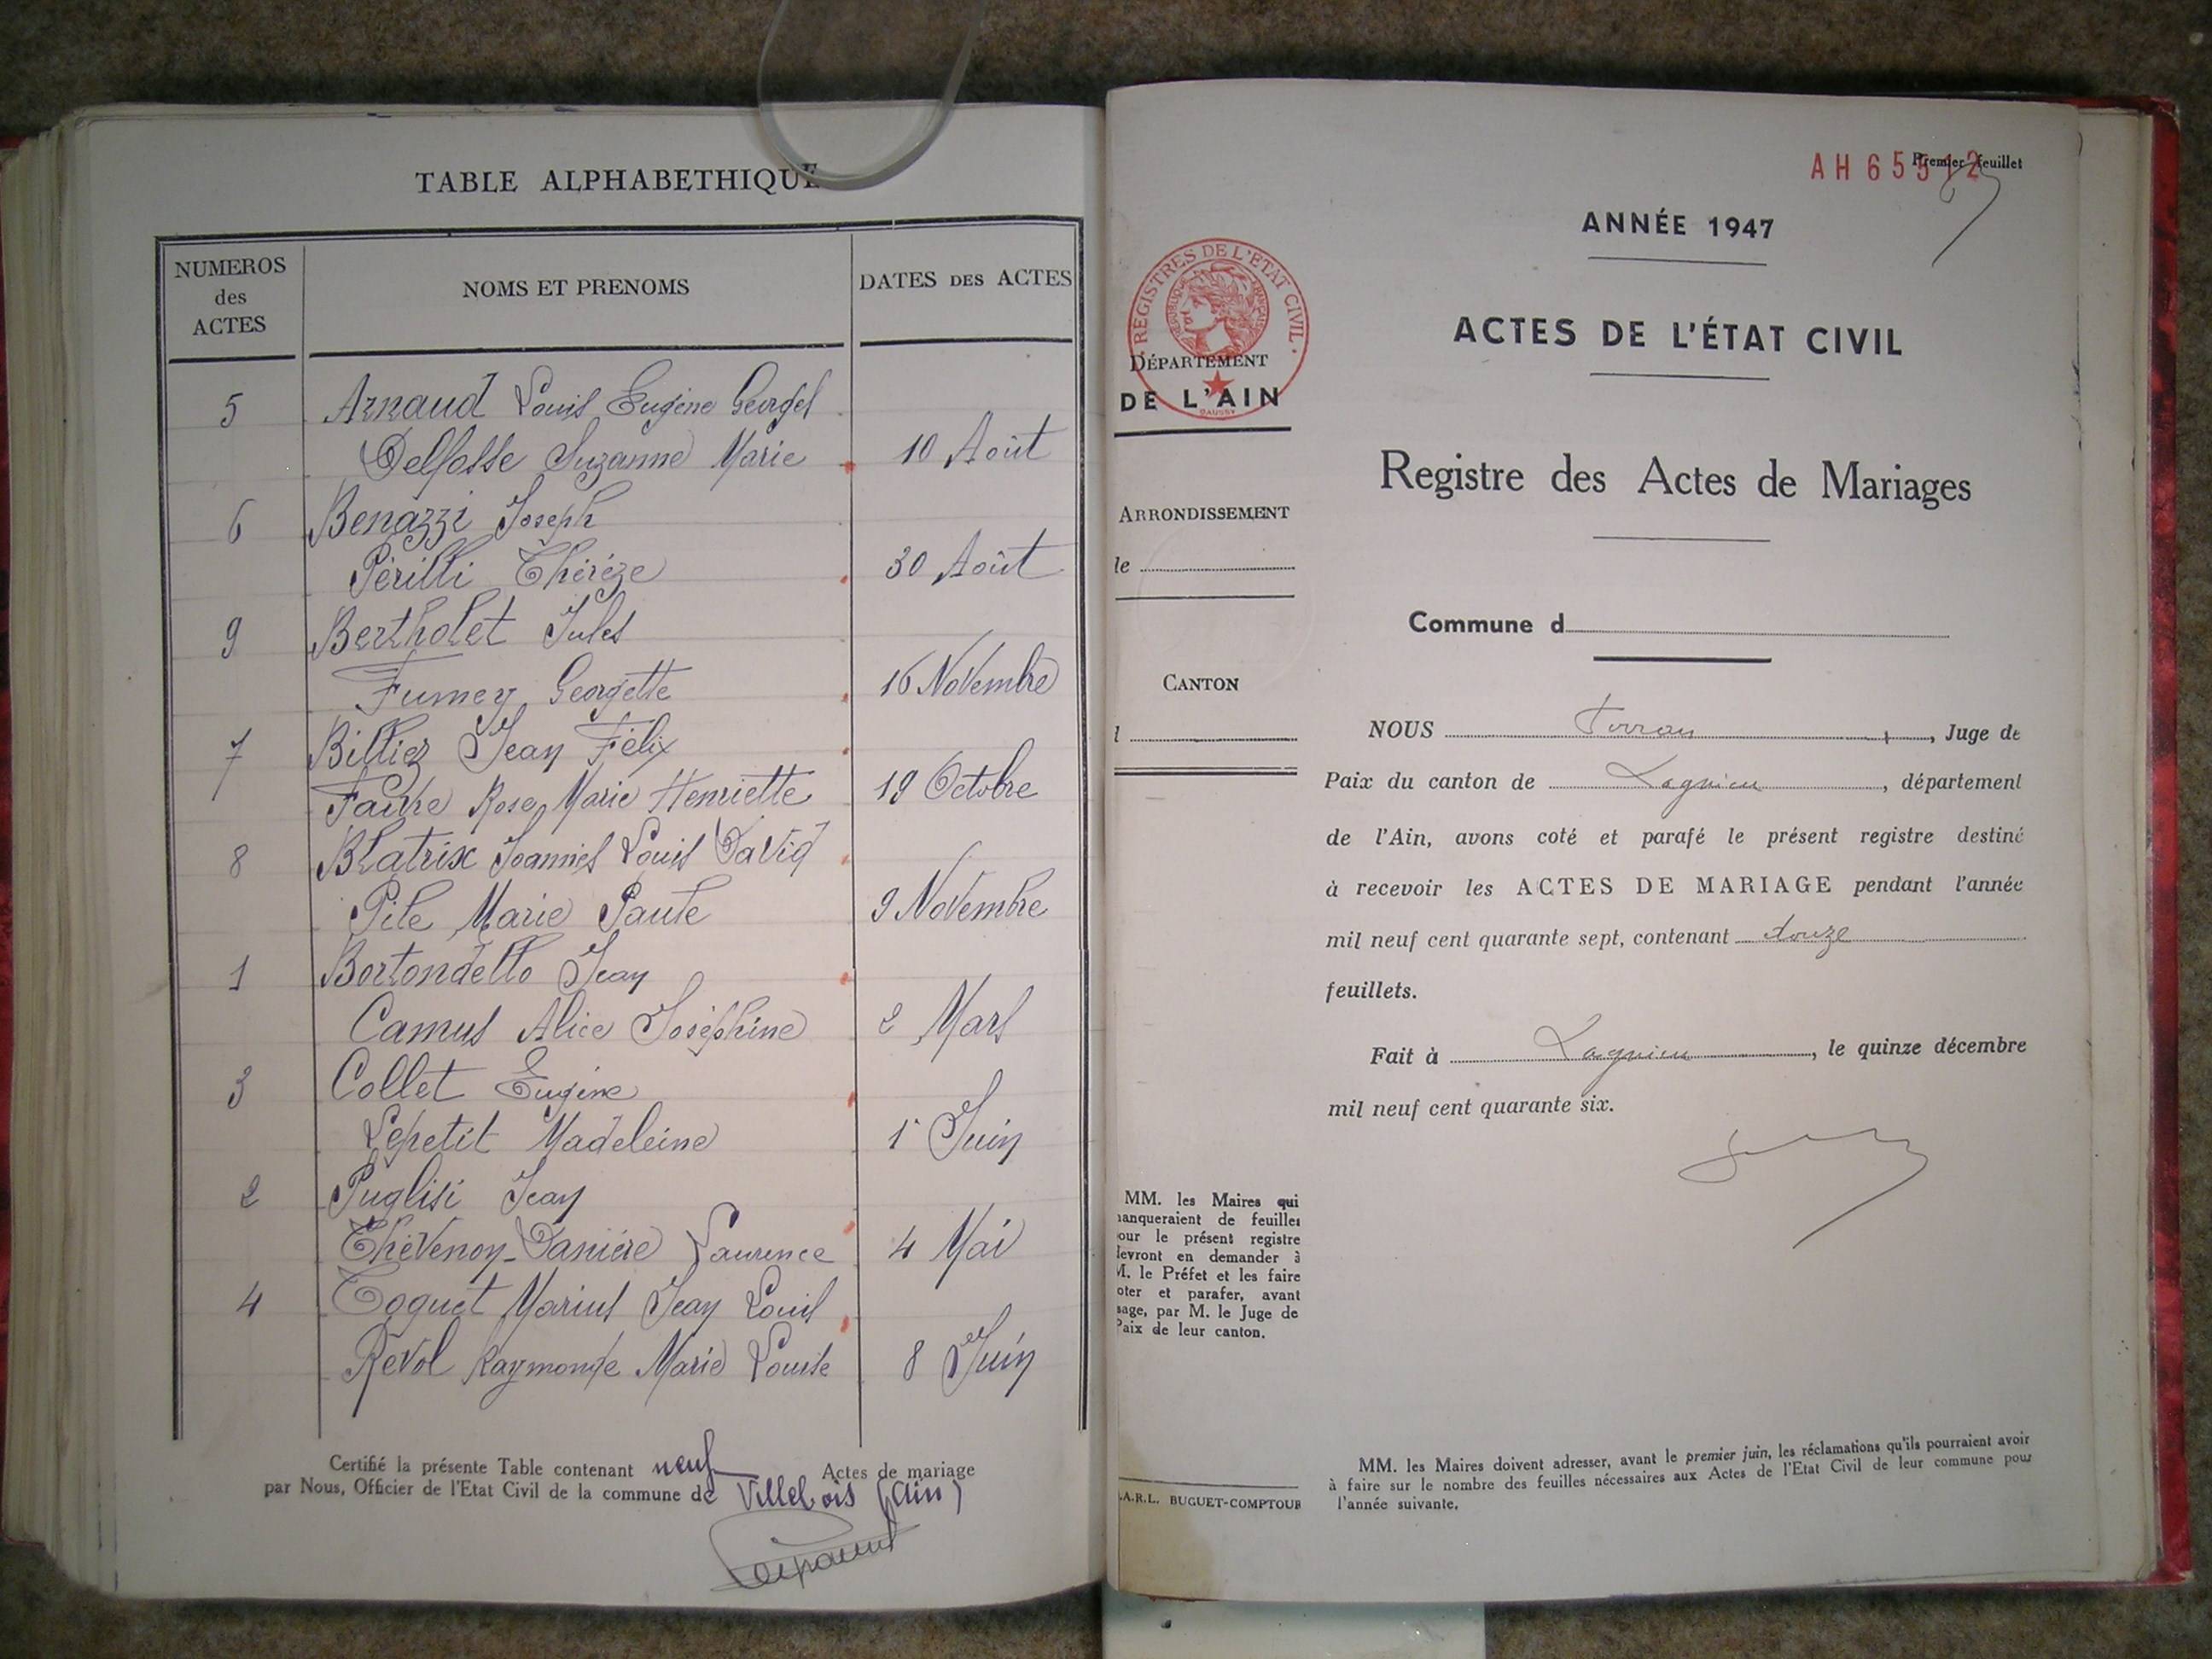 TABLE ALPHABETHIQUE
NUMEROS des ACTES
NOMS ET PRENOMS
DATES DES ACTES
5 Arnaud Louis Eugène Georges
Delfosse Suzanne Marie 10 Août
6 Benazzi Joseph
Périlli Thérèze 30 Août
9 Bertholet Jules
Fumey Georgette 16 Novembre
7 Billiez Jean Félix
Favre Rose Marie Henriette 19 Octobre
8 Blatrix Joannès Louis David
Pile Marie Paule 9 Novembre
1 Bortondello Jean
Camus Alice Joséphine 2 Mars
3 Collet Eugène
Lepetit Madeleine 1 Juin
2 Puglisi Jean
Thévenon-Danière Laurence 4 Mai
4 Toquet Marius Jean Louis
Revol Raymonde Marie Louise 8 Juin
Certifié la présente Table contenant neuf Actes de mariage
par Nous, Officier de l'Etat Civil de la commune de Villebois (Ain)
AH 65512
Premier feuillet
ANNÉE 1947
REGISTRES DE L'ETAT CIVIL
DÉPARTEMENT
DE L'AIN
ACTES DE L'ÉTAT CIVIL
Registre des Actes de Mariages
ARRONDISSEMENT
le
Commune d
CANTON
l
NOUS , Juge de
Paix du canton de Lagnieu, département
de l'Ain, avons coté et parafé le présent registre destiné
à recevoir les ACTES DE MARIAGE pendant l'année
mil neuf cent quarante sept, contenant douze
feuillets.
Fait à Lagnieu, le quinze décembre
mil neuf cent quarante six.
MM. les Maires qui
anqueraient de feuilles
our le présent registre
devront en demander à
M. le Préfet et les faire
oter et parafer, avant
sage, par M. le Juge de
Paix de leur canton.
.A.R.L. BUGUET-COMPTOUR
MM. les Maires doivent adresser, avant le premier juin, les réclamations qu'ils pourraient avoir
à faire sur le nombre des feuilles nécessaires aux Actes de l'Etat Civil de leur commune pour
l'année suivante.